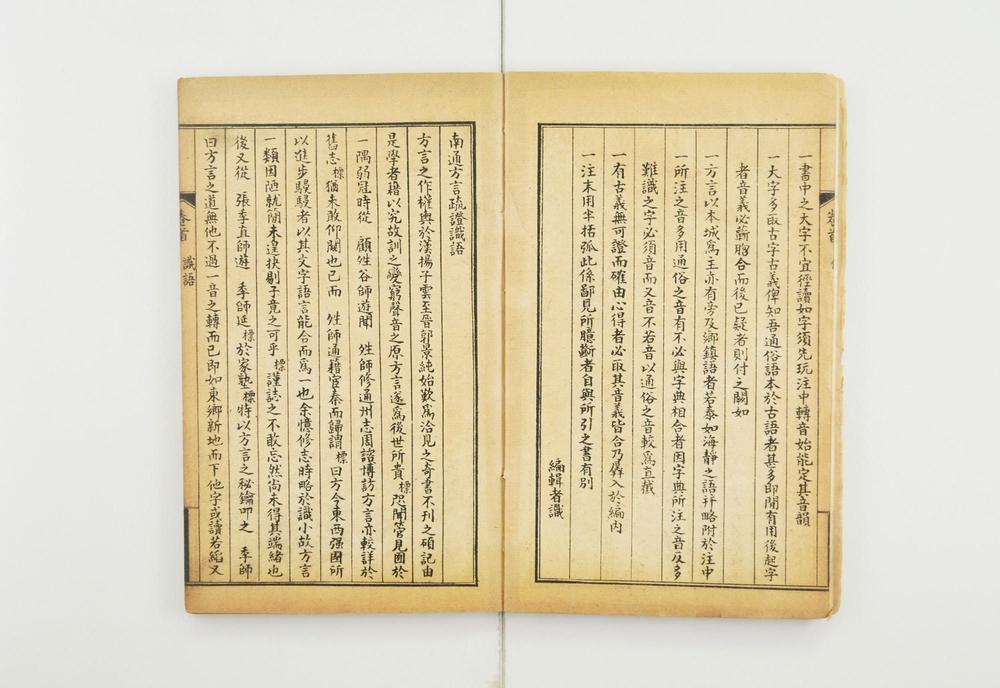 一書中之大字不宜徑讀如字須先玩注中轉音始能定其音韻
一大字多取古字古義俾知吾通俗語本於古語者甚多即閒有用後起字
者音義必蘄脗合而後已疑者則付之闕如
一方言以本城爲主亦有旁及鄉鎮語者若泰如海靜之語幷略附於注中
一所注之音多用通俗之音有不必與字典相合者因字典所注之音反多
難識之字必須音而又音不若音以通俗之音較爲直捷
一有古義無可證而確由心得者必取其音義皆合乃羼入於編內
一注末用半括弧此係鄙見所臆斷者自與所引之書有別
編輯者識
南通方言疏證識語
方言之作權輿於漢揚子雲至晉郭景純始歎爲洽見之奇書不刊之碩記由
是學者藉以究故訓之變窮聲音之原方言遂爲後世所貴標恐聞管見囿於
一隅弱冠時從 顧姓谷師遊聞 姓師修通州志周諮博訪方言亦較詳於
舊志標猶未敢仰闚也已而 姓師通籍官秦而歸謂標曰方今東西强國所
以進步駸駸者以其文字語言能合而爲一也余憶修志時略於識小故方言
一類因陋就簡未遑抉剔子竟之可乎標謹誌之不敢忘然尚未得其端緒也
後又從 張季直師遊 季師延標於家塾標特以方言之秘鑰叩之 季師
曰方言之道無他不過一音之轉而已即如東鄉新地而下他字或讀若紽又
卷首 識語
卷首